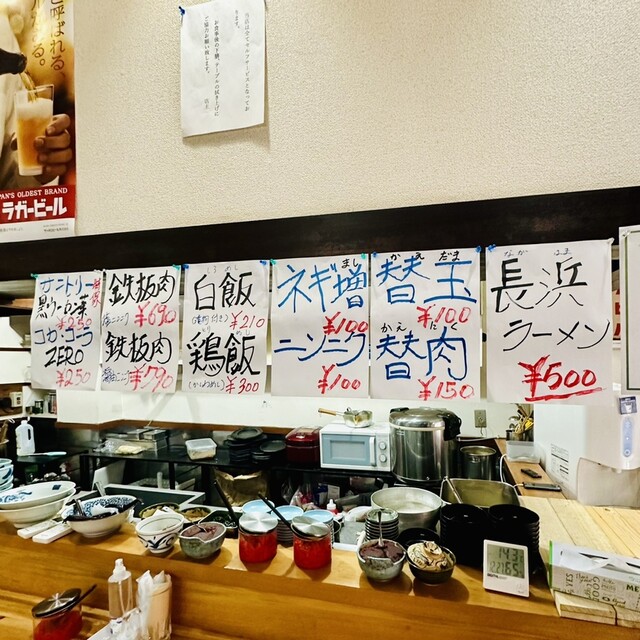 と呼ばれる、
いる。
PAN'S OLDEST BRAND
ラガービール
当店は全てセルフサービスとなってお
ります。
お食事後の下膳、テーブルの拭き上げに
ご協力お願い致します。
店主
サントリー
黒ウーロン茶
¥250
コカ・コーラ
ZERO
¥250
鉄板肉
¥690
鉄板肉
¥790
白飯
¥210
鶏飯
(かしわめし)
¥300
ネギ増
まし
¥100
ニンニク
¥100
かえ だま
替玉
¥100
かえ にく
替肉
¥150
ながはま
長浜
ラーメン
¥500